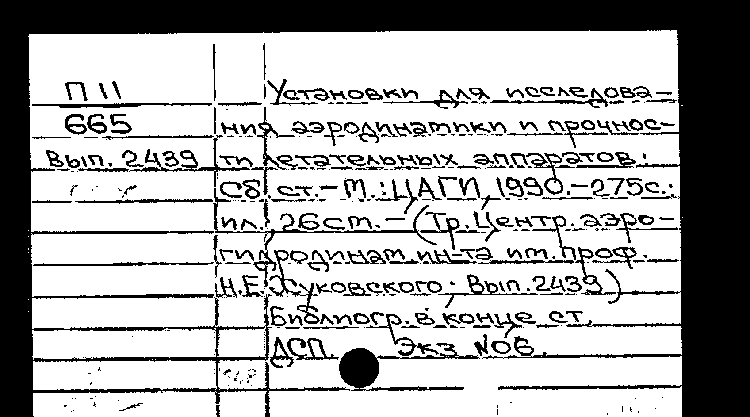 П 11
665
Вып. 2439
Установки для исследова-
ния аэродинамики и прочнос-
ти летательных аппаратов:
Сб. ст.-М.:ЦАГИ, 1990.-275с.:
ил., 26см.-(Тр. Центр. аэро-
гидродинам. ин-та им. проф.
Н.Е. Жуковского; Вып. 2439)
Библиогр. в конце ст.
ДСП. Экз №06.